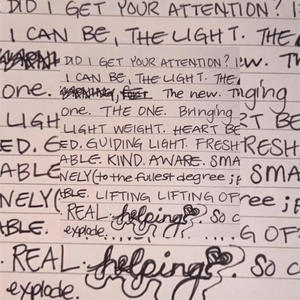 DID I GET YOUR ATTENTION? I
I CAN BE, THE LIGHT. THE
one.
LIGHT
ED.
ABLE
NELY(
ABLE.
DID I GET YOUR ATTENTION?
I CAN BE, THE LIGHT. THE
The new.
one. THE ONE. Bringing
LIGHT WEIGHT. HEART BE
ED. GUIDING LIGHT. FRESH
ABLE. KIND. AWARE. SMA
NELY (to the fullest degree ;p
ABLE. LIFTING LIFTING OF
REAL. helping. So c
explode.
BE
RESH
SMA
ree ;p
G OF
REAL. helping. So c
explode.